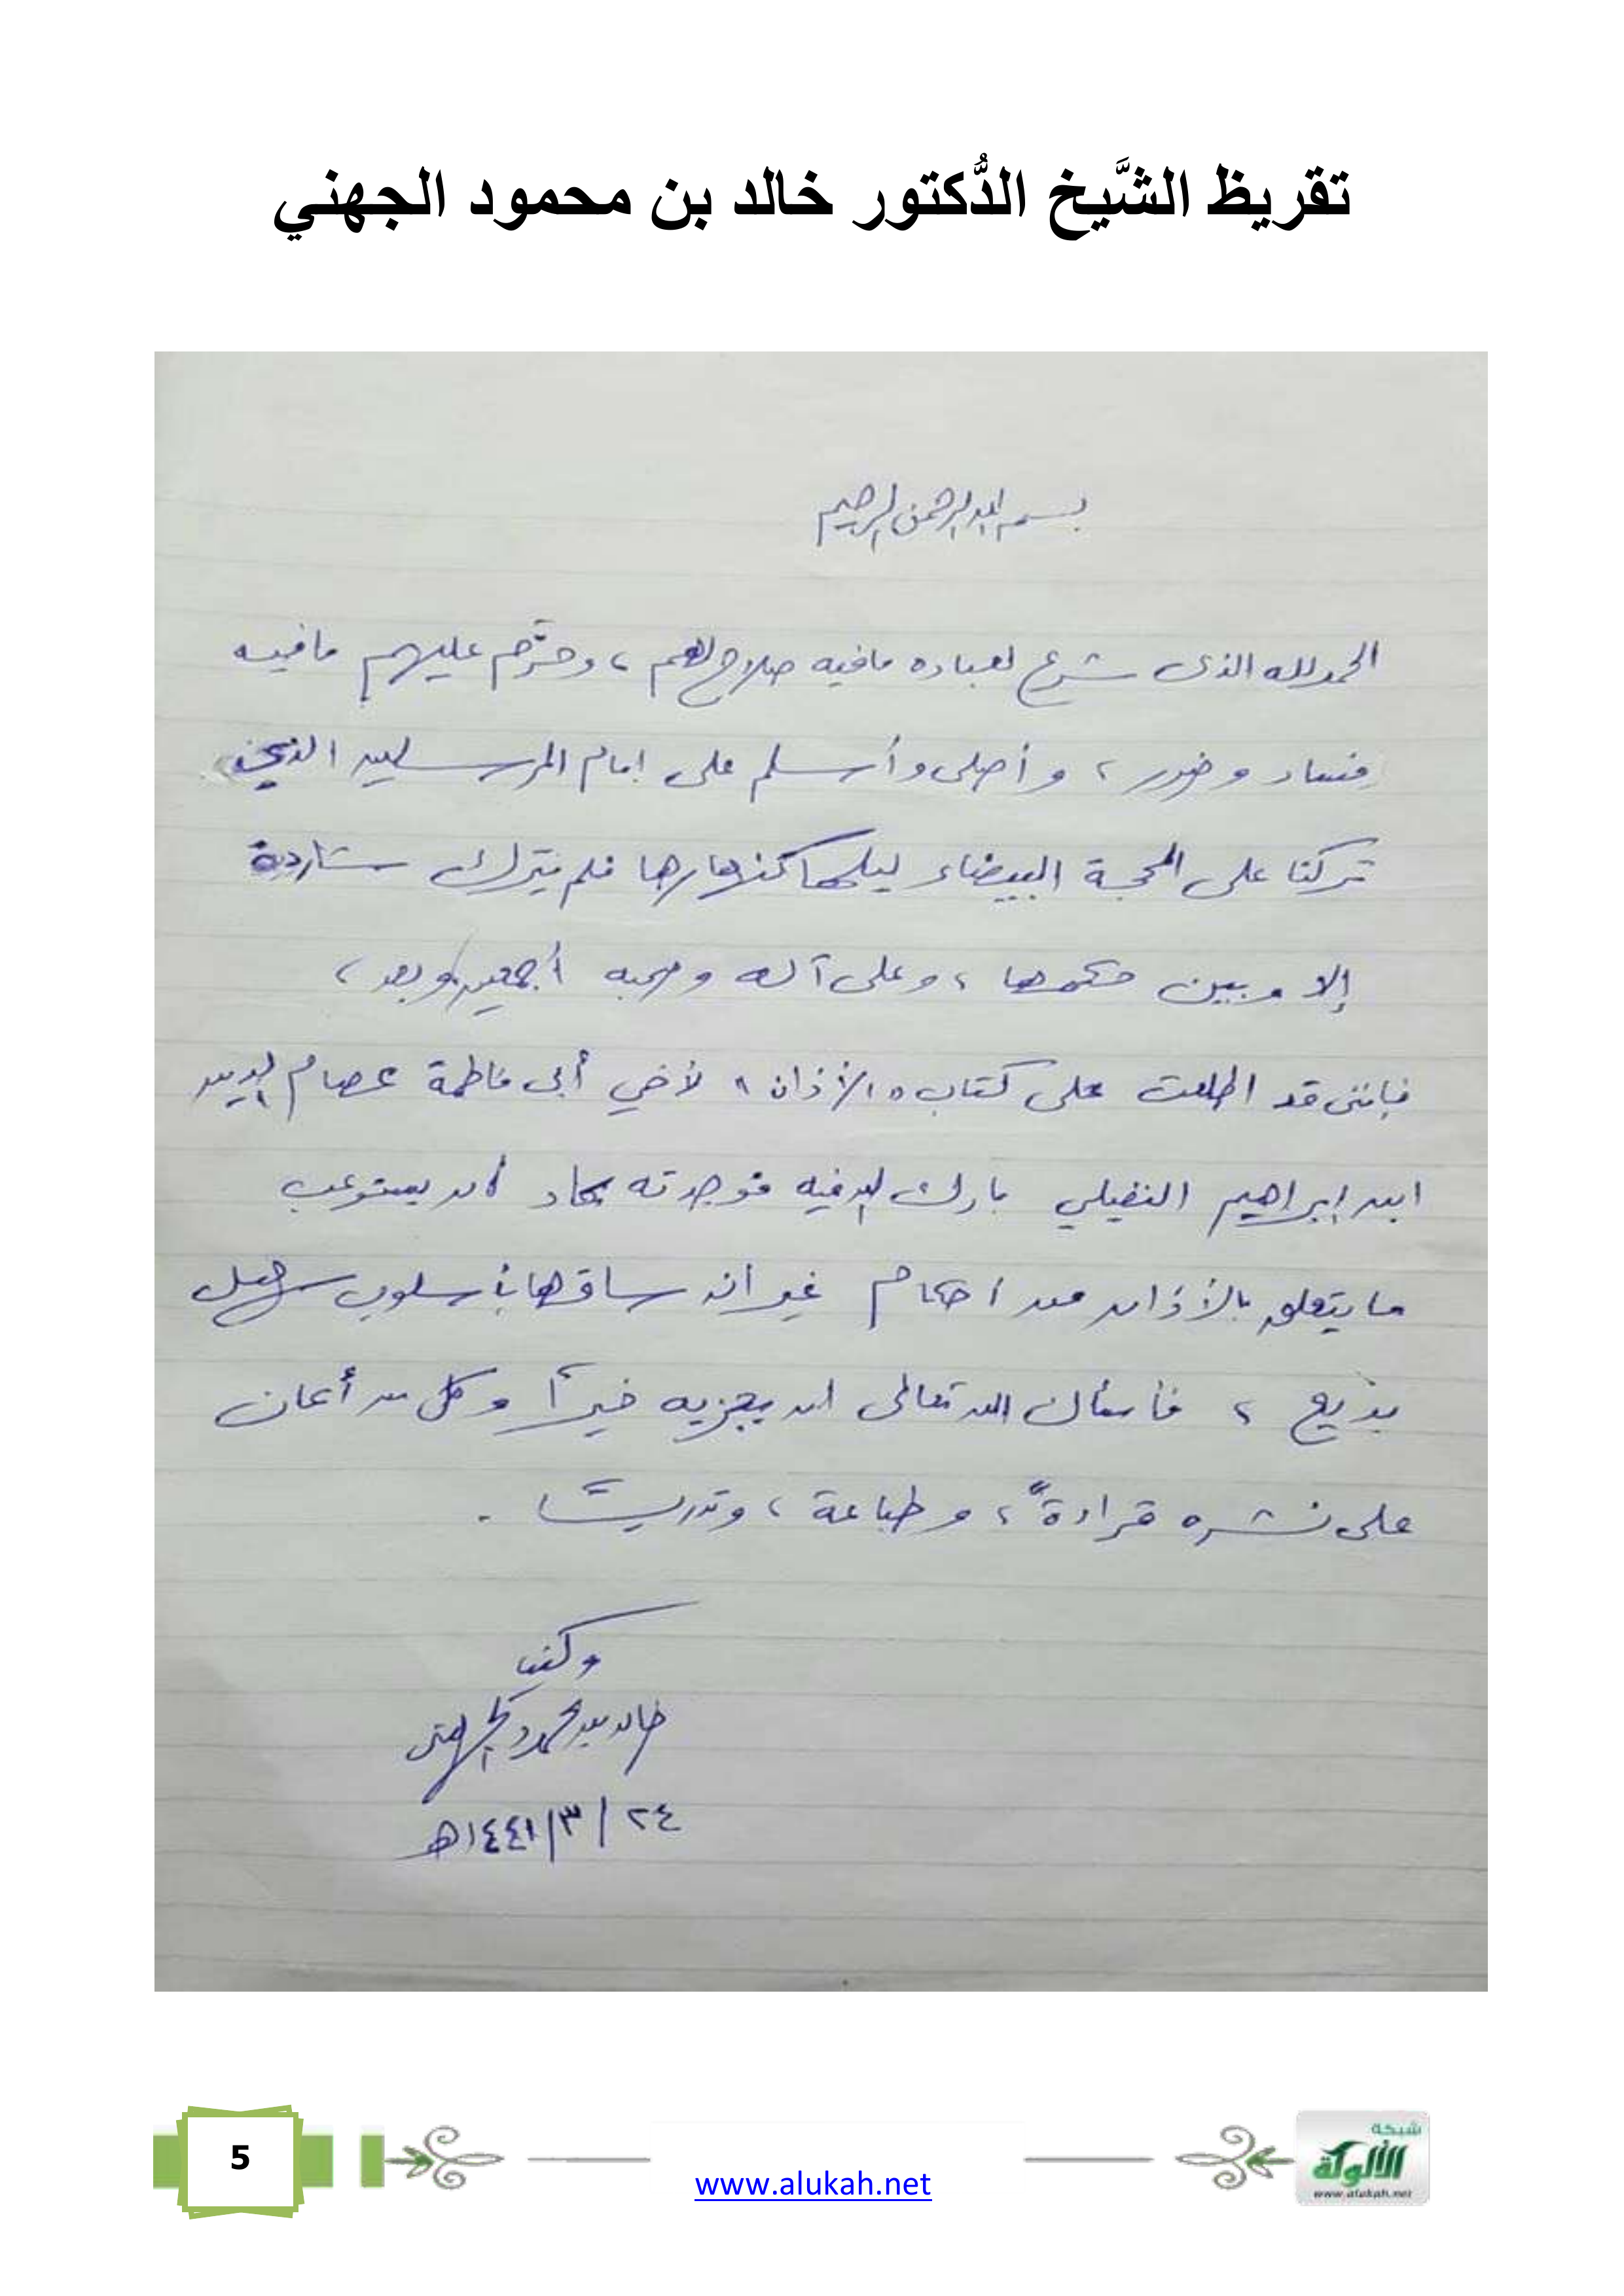 تقريظ الشَّيخ الدُّكتور خالد بن محمود الجهني
بسم الله الرحمن الرحيم
الحمد لله الذى شرع لعباده ما فيه صلاح لهم ، وحرَّم عليهم ما فيه
فساد وضرر ، وأصلى وأسلم على إمام المرسلين الذي
تركنا على المحجة البيضاء ليلها كنهارها فلم يترك شاردة
إلا وبين حكمها ، وعلى آله وصحبه أجمعين وبعد ،
فإننى قد اطلعت على كتاب " الأذان " لأخي أبى فاطمة عصام الدين
ابن إبراهيم النفيلي بارك الله فيه فوجدته يكاد أن يستوعب
ما يتعلق بالأذان من أحكام غير أنه ساقها بأسلوب سهل
بديع ، فأسأل الله تعالى أن يجزيه خيرًا وكل من أعان
على نشره قراءةً ، وطباعة ، وتدريسًا .
وكتب
خالد بن محمود الجهنى
٢٤ / ٣ / ١٤٤١هـ
5
www.alukah.net
شبكة
الألوكة
www.alukah.net